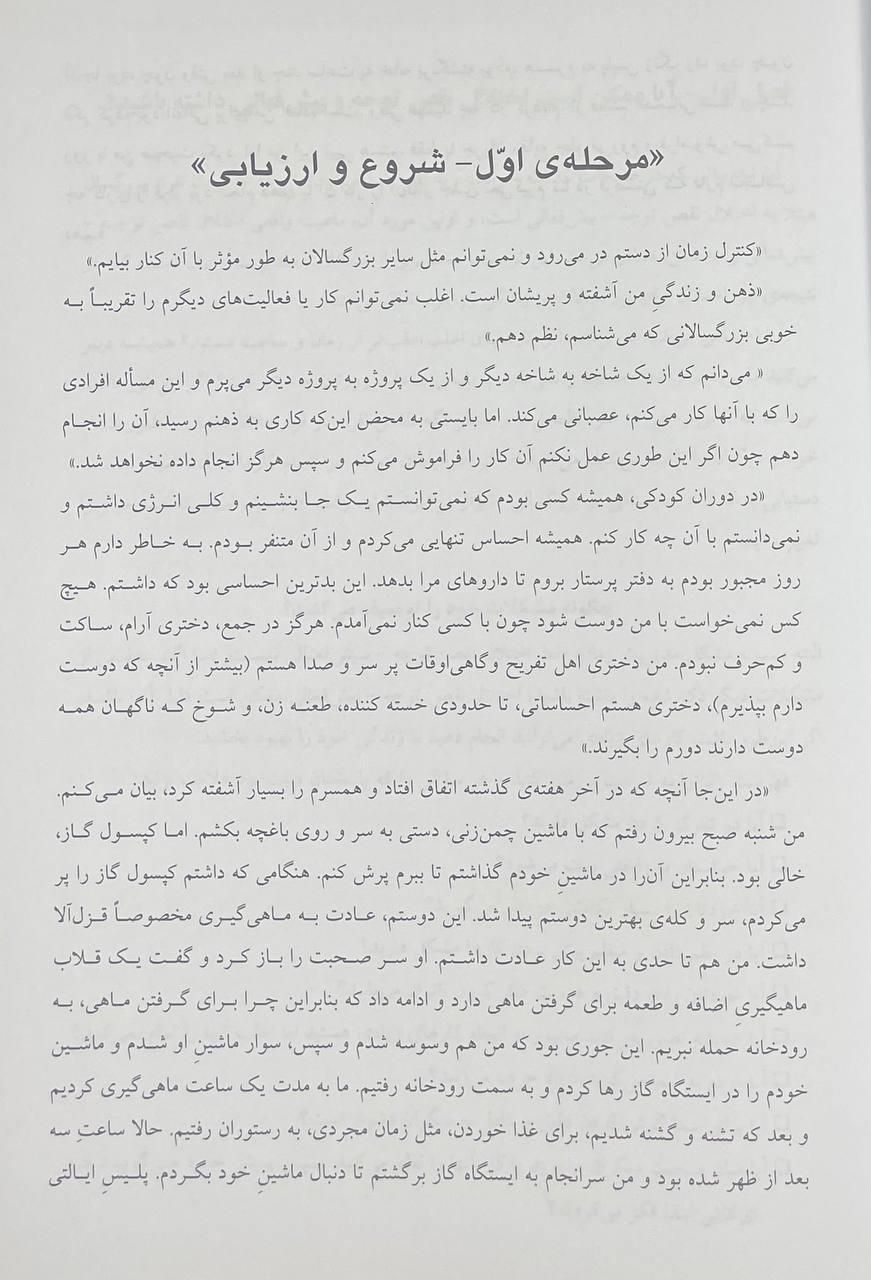 «مرحله‌ی اوّل- شروع و ارزیابی»
«کنترل زمان از دستم در می‌رود و نمی‌توانم مثل سایر بزرگسالان به طور مؤثر با آن کنار بیایم.»
«ذهن و زندگیِ من آشفته و پریشان است. اغلب نمی‌توانم کار یا فعالیت‌های دیگرم را تقریباً به
خوبی بزرگسالانی که می‌شناسم، نظم دهم.»
« می‌دانم که از یک شاخه به شاخه دیگر و از یک پروژه به پروژه دیگر می‌پرم و این مسأله افرادی
را که با آنها کار می‌کنم، عصبانی می‌کند. اما بایستی به محض این‌که کاری به ذهنم رسید، آن را انجام
دهم چون اگر این طوری عمل نکنم آن کار را فراموش می‌کنم و سپس هرگز انجام داده نخواهد شد.»
«در دوران کودکی، همیشه کسی بودم که نمی‌توانستم یک جا بنشینم و کلی انرژی داشتم و
نمی‌دانستم با آن چه کار کنم. همیشه احساس تنهایی می‌کردم و از آن متنفر بودم. به خاطر دارم هر
روز مجبور بودم به دفتر پرستار بروم تا داروهای مرا بدهد. این بدترین احساسی بود که داشتم. هیچ
کس نمی‌خواست با من دوست شود چون با کسی کنار نمی‌آمدم. هرگز در جمع، دختری آرام، ساکت
و کم‌حرف نبودم. من دختری اهل تفریح وگاهی‌اوقات پر سر و صدا هستم (بیشتر از آنچه که دوست
دارم بپذیرم)، دختری هستم احساساتی، تا حدودی خسته کننده، طعنه زن، و شوخ که ناگهان همه
دوست دارند دورم را بگیرند.»
«در این‌جا آنچه که در آخر هفته‌ی گذشته اتفاق افتاد و همسرم را بسیار آشفته کرد، بیان می‌کنم.
من شنبه صبح بیرون رفتم که با ماشین چمن‌زنی، دستی به سر و روی باغچه بکشم. اما کپسول گاز،
خالی بود. بنابراین آن‌را در ماشینِ خودم گذاشتم تا ببرم پرش کنم. هنگامی که داشتم کپسول گاز را پر
می‌کردم، سر و کله‌ی بهترین دوستم پیدا شد. این دوستم، عادت به ماهی‌گیری مخصوصاً قزل‌آلا
داشت. من هم تا حدی به این کار عادت داشتم. او سر صحبت را باز کرد و گفت یک قلاب
ماهیگیریِ اضافه و طعمه برای گرفتن ماهی دارد و ادامه داد که بنابراین چرا برای گرفتن ماهی، به
رودخانه حمله نبریم. این جوری بود که من هم وسوسه شدم و سپس، سوار ماشینِ او شدم و ماشین
خودم را در ایستگاه گاز رها کردم و به سمت رودخانه رفتیم. ما به مدت یک ساعت ماهی‌گیری کردیم
و بعد که تشنه و گشنه شدیم، برای غذا خوردن، مثل زمان مجردی، به رستوران رفتیم. حالا ساعتِ سه
بعد از ظهر شده بود و من سرانجام به ایستگاه گاز برگشتم تا دنبال ماشینِ خود بگردم. پلیسِ ایالتی